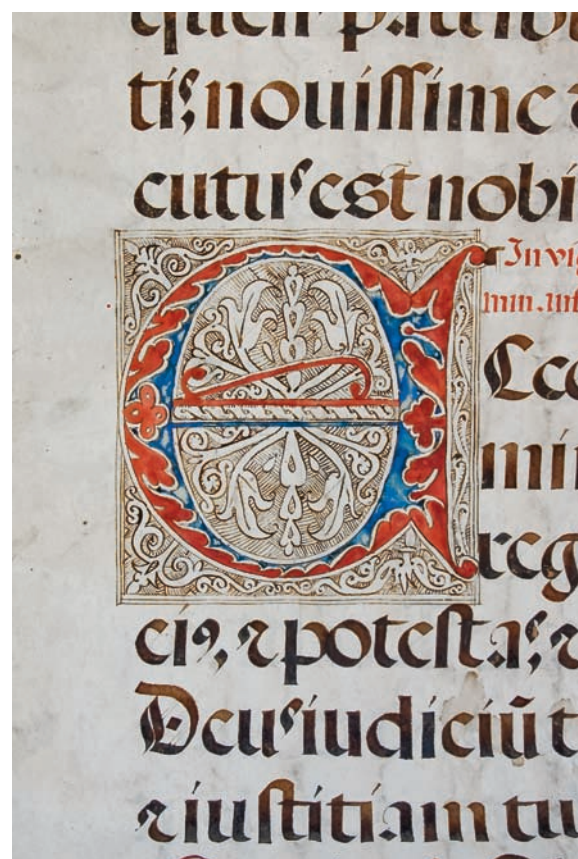 tiˢ; nouissime
cutuˢ est nobi
In vi
E cce
min
reg
ei⁹, ⁊ potestaˢ;
Deuˢ iudiciū t
⁊ iustitiam tu